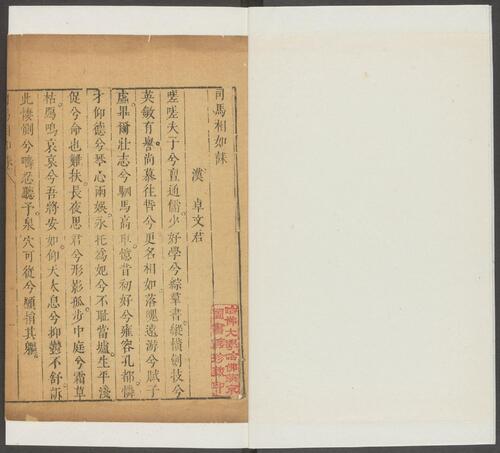 司馬相如誄
漢 卓文君
嗟嗟夫子兮亶通儒少好學兮綜羣書縱橫劍技兮
英敏有譽尚慕往哲兮更名相如落魄遠游兮賦子
虛畢爾壯志兮駟馬高車憶昔初好兮雍容孔都憐
才仰德兮琴心兩娛永托爲妃兮不恥當壚生平淺
促兮命也難扶長夜思君兮形影孤步中庭兮霜草
枯鴈鳴哀哀兮吾將安如仰天太息兮抑鬱不舒訴
此悽惻兮疇忍聽予泉穴可從兮願捐其軀
哈佛大學哈佛燕京
圖書館珍藏印